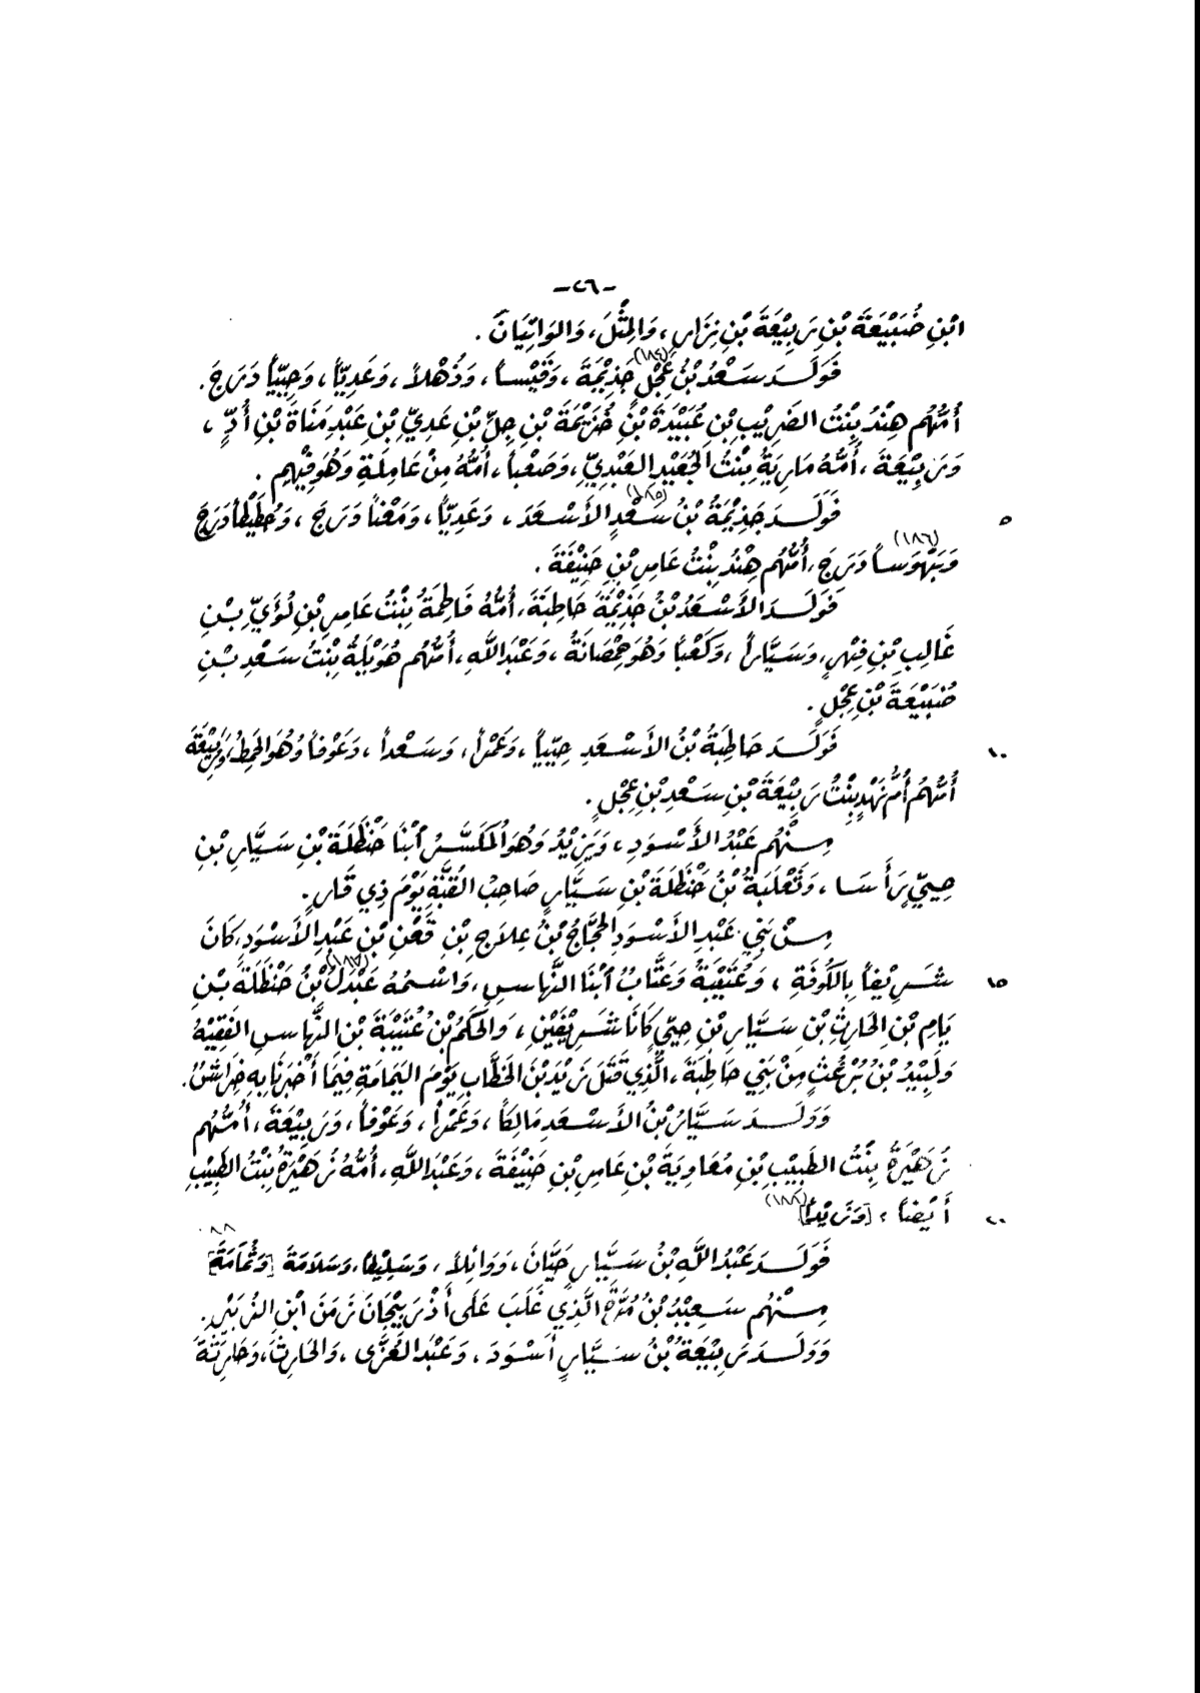 -٢٦-
ابْنِ ضُبَيْعَةَ بْنِ رَبِيْعَةَ بْنِ نِزَارٍ، وَالمِثْلَ، وَالوَاثِبَانَ.
فَوَلَـدَ سَعْدُ بْنُ عِجْلٍ (١٨٤) جَذِيْمَةَ، وَقَيْساً، وَذُهْلاً، وَعَدِيّاً، وَحِيَيّاً دَرَجَ.
أُمُّهُم هِنْدُ بِنْتُ الضَّرِيْبِ بْنِ عُبَيْدَةَ بْنِ خُزَيْمَةَ بْنِ جِلِّ بْنِ عَدِيِّ بْنِ عَبْدِ مَنَاةَ بْنِ أُدٍّ،
وَرَبِيْعَةَ، أُمُّهُ مَارِيَةُ بِنْتُ الجُعَيْدِ العَبْدِيِّ، وَصَعْباً، أُمُّهُ مِنْ عَامِلَةَ وَهُوَ فِيْهِم.
فَوَلَـدَ جَذِيْمَةُ بْنُ سَعْدٍ (١٨٥) الأَسْعَدَ، وَعَدِيّاً، وَمَعْناً دَرَجَ، وَحُطَيْطاً دَرَجَ ٥
وَبَيْهَوساً (١٨٦) دَرَجَ، أُمُّهُم هِنْدُ بِنْتُ عَامِرِ بْنِ حَنِيْفَةَ.
فَوَلَـدَ الأَسْعَدُ بْنُ جَذِيْمَةَ حَاطِبَةَ، أُمُّهُ فَاطِمَةُ بِنْتُ عَامِرِ بْنِ لُؤَيِّ بْنِ
غَالِبِ بْنِ فِهْرٍ، وَسَيَّاراً، وَكَعْباً وَهُوَ حِمْصَانَةُ، وَعَبْدَ اللهِ، أُمُّهُم هُوَيْلَةُ بِنْتُ سَعْدِ بْنِ
ضُبَيْعَةَ بْنِ عِجْلٍ.
فَوَلَـدَ حَاطِبَةُ بْنُ الأَسْعَدِ حِيَيّاً، وَعَمْراً، وَسَعْداً، وَعَوْفاً وَهُوَ الحَمِطُ، وَرَبِيْعَةَ ١٠
أُمُّهُم أُمُّ نَهْدٍ بِنْتُ رَبِيْعَةَ بْنِ سَعْدِ بْنِ عِجْلٍ.
مِـنْهُم عَبْدُ الأَسْوَدِ، وَيَزِيْدُ وَهُوَ المُكَسَّرُ ابْنَا حَنْظَلَةَ بْنِ سَيَّارِ بْنِ
حِيَيٍّ رَأَسَـا، وَثَعْلَبَةُ بْنُ حَنْظَلَةَ بْنِ سَيَّارٍ صَاحِبُ القُبَّةِ يَوْمَ ذِي قَارٍ.
مِـنْ بَنِي عَبْدِ الأَسْوَدِ الحَجَّاجُ بْنُ عِلاَجِ بْنِ قَعْنِ بْنِ عَبْدِ الأَسْوَدِ، كَانَ
شَـرِيْفاً بِالكُوفَةِ، وَعُتَيْبَةُ وَعَتَّابُ ابْنَا النَّهَّاسِ، وَاسْمُهُ عَبْدَلُ (١٨٧) بْنُ حَنْظَلَةَ بْنِ ١٥
يَامِ بْنِ الحَارِثِ بْنِ سَيَّارِ بْنِ حِيَيٍّ كَانَا شَـرِيْفَيْنِ، وَالحَكَمُ بْنُ عُتَيْبَةَ بْنِ النَّهَّاسِ الفَقِيْهُ
وَلَبِيْدُ بْنُ بُرْغُثٍ مِنْ بَنِي حَاطِبَةَ، الَّذِي قَتَلَ زَيْدَ بْنَ الخَطَّابِ يَوْمَ اليَمَامَةِ فِيْمَا أَخْبَرَنَا بِهِ خِرَاشُ.
وَوَلَـدَ سَيَّارُ بْنُ الأَسْعَدِ مَالِكاً، وَعَمْراً، وَعَوْفاً، وَرَبِيْعَةَ، أُمُّهُم
زَهَيْرَةُ بِنْتُ الطَّبِيْبِ بْنِ مُعَاوِيَةَ بْنِ عَامِرِ بْنِ حَنِيْفَةَ، وَعَبْدَ اللهِ، أُمُّهُ زَهَيْرَةُ بِنْتُ الطَّبِيْبِ
أَيْضاً، [وَزَيْداً] (١٨٨) ٢٠
فَوَلَـدَ عَبْدُ اللَّهِ بْنُ سَيَّارٍ حَيَّانَ، وَوَائِلاً، وَسَلِيْطاً، وَسَلاَمَةَ [وَثُمَامَةَ] ٨٨
مِـنْهُم سَعِيْدُ بْنُ مُرَّةَ الَّذِي غَلَبَ عَلَى أَذْرَبِيْجَانَ زَمَنَ ابْنِ الزُّبَيْرِ.
وَوَلَـدَ رَبِيْعَةُ بْنُ سَيَّارٍ أَسْوَدَ، وَعَبْدَ العُزَّى، وَالحَارِثَ، وَحَارِثَةَ